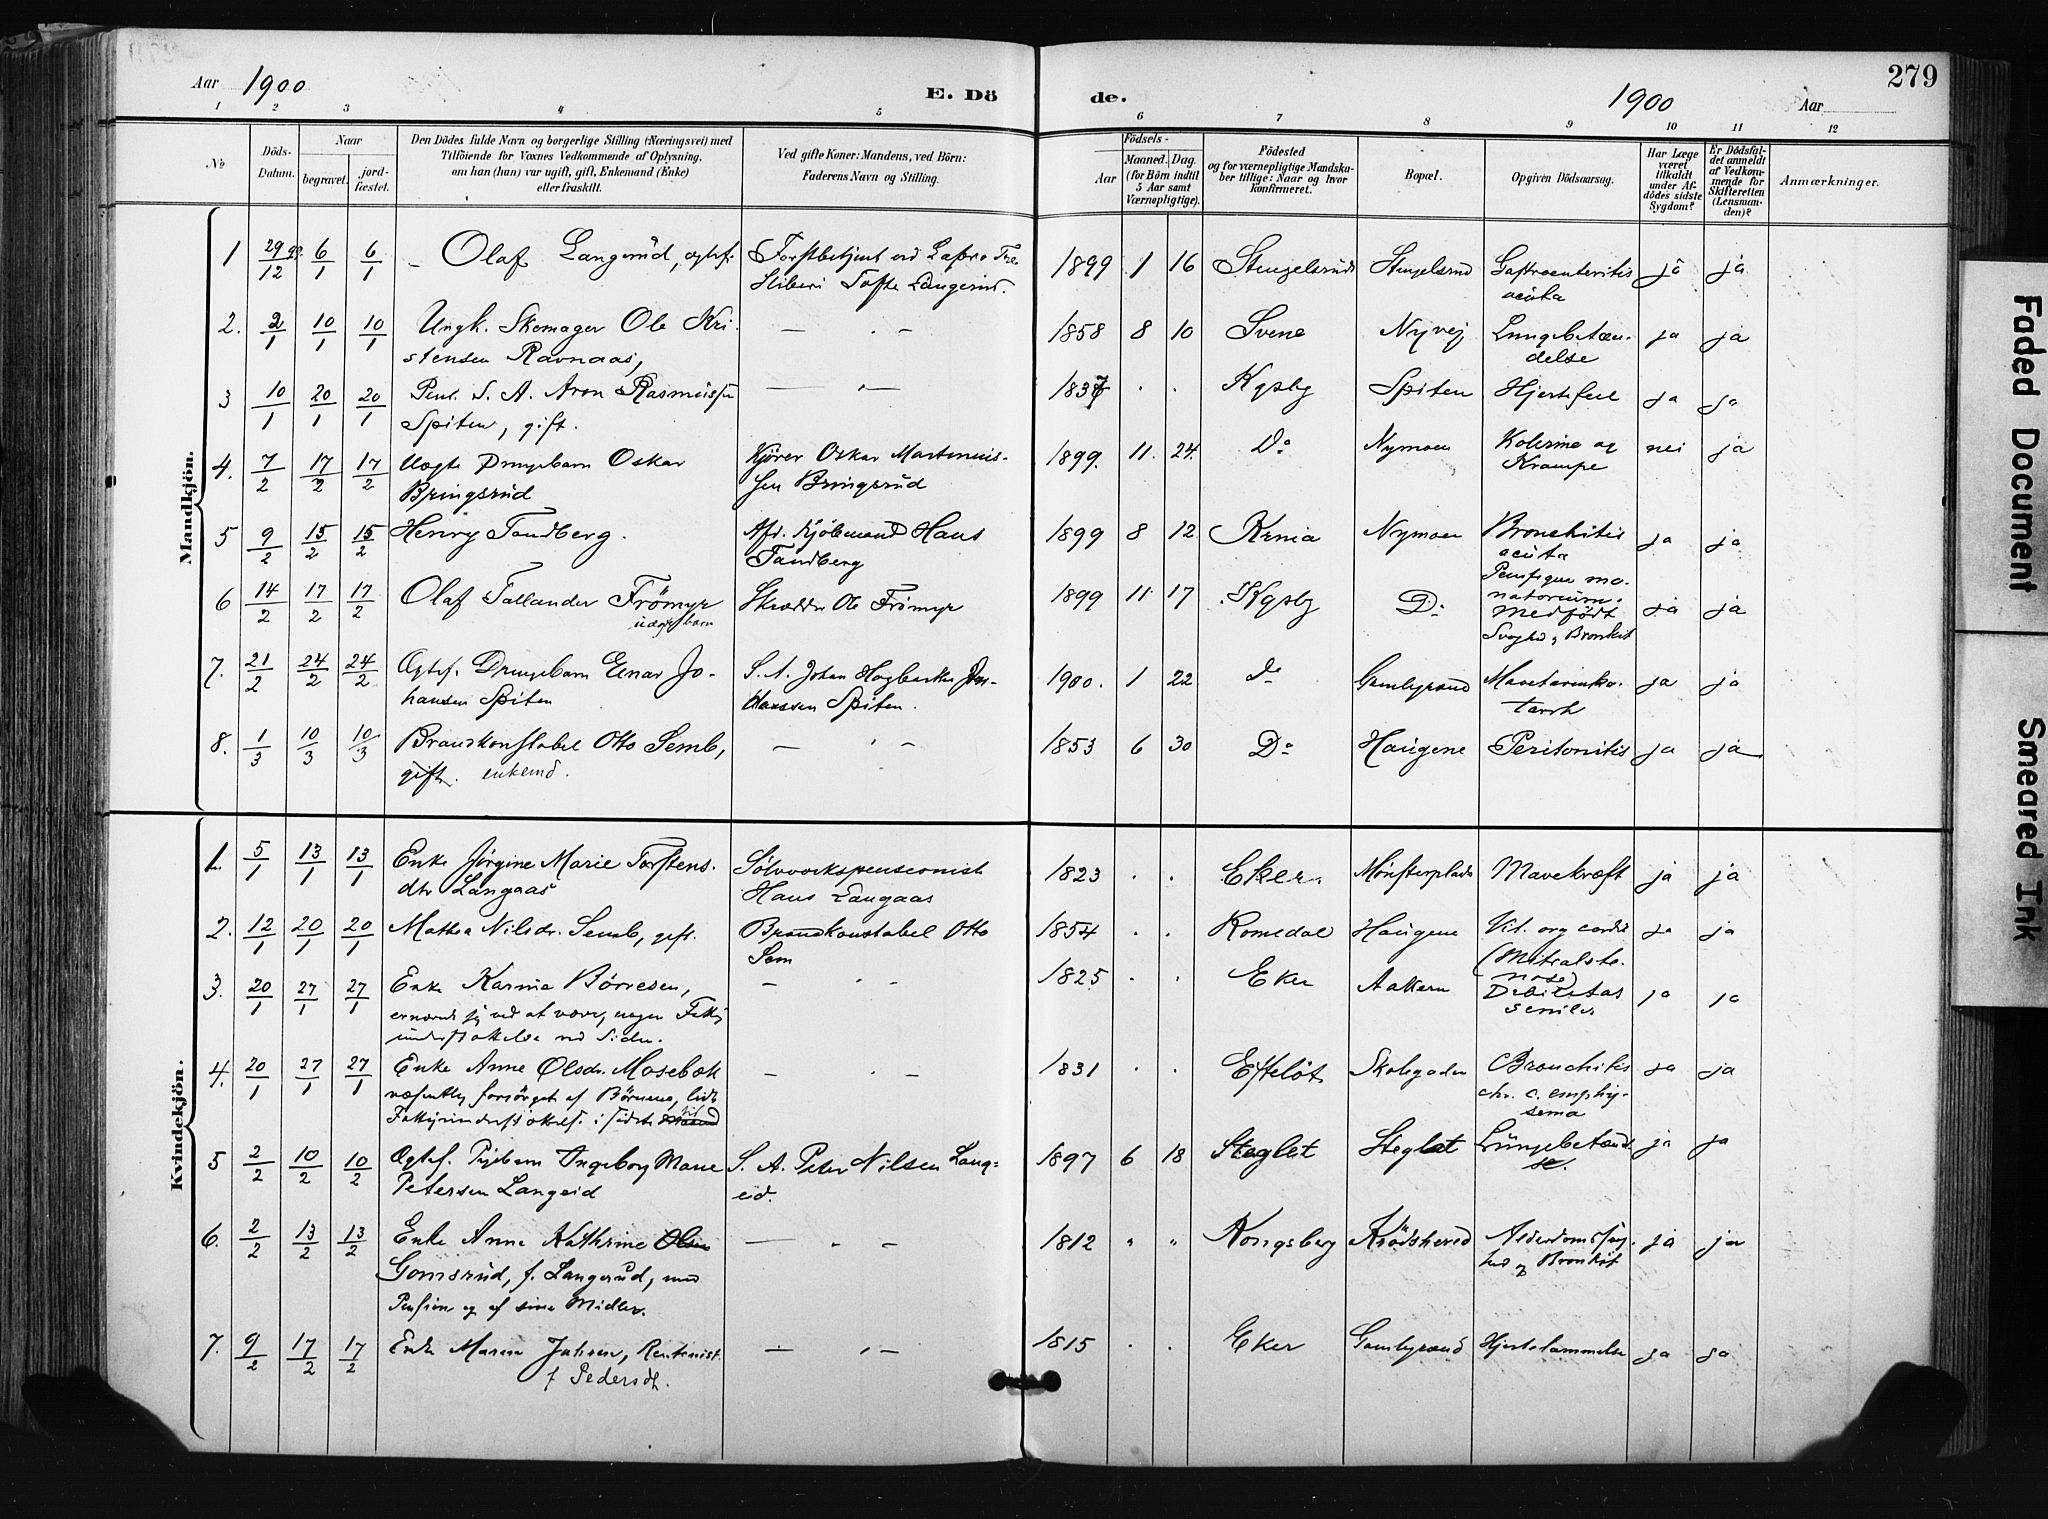 Aar 1900
E. Dö
de.
1900 Aar
279
1 2 3 4 5 6 7 8 9 10 11 12
No
Döds-Datum.
Naar
begravet.
jord-fæstet.
Den Dödes fulde Navn og borgerlige Stilling (Næringsvei) med
Tilföiende for Voxnes Vedkommende af Oplysning,
om han (hun) var ugift, gift, Enkemand (Enke)
eller fraskilt.
Ved gifte Koner: Mandens, ved Börn:
Faderens Navn og Stilling.
Födsels-
Aar
Maaned. Dag.
(for Börn indtil
5 Aar samt
Værnepligtige).
Födested
og for værnepligtige Mandska-
ber tillige: Naar og hvor
konfirmeret.
Bopæl.
Opgiven Dödsaarsag.
Har Læge
været
tilkaldt
under Af-
dödes sidste
Sygdom?
Er Dödsfal-
det anmeldt
af Vedkom-
mende for
Skifteretten
(Lensman-
den)?
Anmærkninger.
Mandkjön.
1 29/12 99. 6/1 6/1 Olaf Langerud, ægtef. Forstbetjent 1899 1 16 Stengelsrud Stengelsrud Gastroenteritis ja ja
Tofte Langerud.
acuta
2. 2/1 10/1 10/1 Ungk. Skomager Ole Kri- — " — 1858 8 10 Svene Nyvej Lungebetæn- ja ja
stensen Ravnaas,
delse
3 10/1 20/1 20/1 Pens. S. A. Aron Rasmussen — " — 1837 . . Kgsbg Spiten Hjertefeil ja ja
Spiten, gift.
4. 7/2 17/2 17/2 Uægte Drengebarn Oskar Kjører Oskar Martinius- 1899. 11. 24. Do Nymoen Kolerine og nei ja
Bringsrud
sen Bringsrud
Krampe
5 9/2 15/2 15/2 Henry Tandberg. Afd. Kjöbmand Hans 1899 8 12 Krnia Nymoen Bronchitis ja ja
Tandberg
acuta
6 14/2 17/2 17/2 Olaf Tallander Frömyr Skrædder Ole Frömyr 1899 11. 17 Kgsbg Do ja ja
uægte barn
natorium.
Medfödt
Svaghed og Bronkit
7. 21/2 24/2 24/2 Ægtef. Drengebarn Einar Jo- S. A. Johan Hagbarth Jo- 1900. 1 22 Do Gamlegrænd Mavetarmka- ja ja
hansen Spiten
hansen Spiten.
tarrh
8. 1/3 10/3 10/3 Brandkonstabel Otto Semb, — " — 1853 6 30 Do Haugene Peritonitis ja ja
gift. enkemd.
Kvindekjön.
1. 5/1 13/1 13/1 Enke Jörgine Marie Torstens- Sölvværkspensionist 1823 . . Eker. Mönsterplads Mavekræft ja ja
dtr Langaas
Hans Langaas
2. 12/1 20/1 20/1 Mathea Nilsdr. Semb, gift. Brandkonstabel Otto 1854 . . Romedal Haugene Vit. org cordis ja ja
Sem
(Mitralste-
nose)
3. 20/1 27/1 27/1 Enke Karine Börresen, — " — 1825 . . Eker Aakern Debilitas ja ja
ernærede sig ved at væve, nogen Fattig
senilis
understöttelse ved Siden.
4. 20/1 27/1 27/1 Enke Anne Olsdr. Mosebæk — " — 1831 . . Efteløt Skolegaden Bronchitis ja ja
væsentlig forsörget af Börnene, lidt
chr. c. emphy-
sema
Fattigunderstöttelse. i sidste tid
5 2/2 10/2 10/2 Ægtef. Pigebarn Ingeborg Marie S. A. Peter Nilsen Lang- 1897 6 18 Steglet Steglet Lungebetændel- ja ja
Petersen Langeid
eid.
se.
6. 2/2 13/2 13/2 Enke Anne Kathrine Olsen — " — 1812 " " Kongsberg Krödshered Alderdomssvag- ja ja
Gomsrud, f. Langerud, med
hed og Bronkit
Pension og af sine Midler.
7. 9/2 17/2 17/2 Enke Maren Jahren, Rentenist — " — 1815 . . Eker Gamlegrænd Hjertelammelse ja ja
f Pedersdt.
Faded Document
Smeared Ink